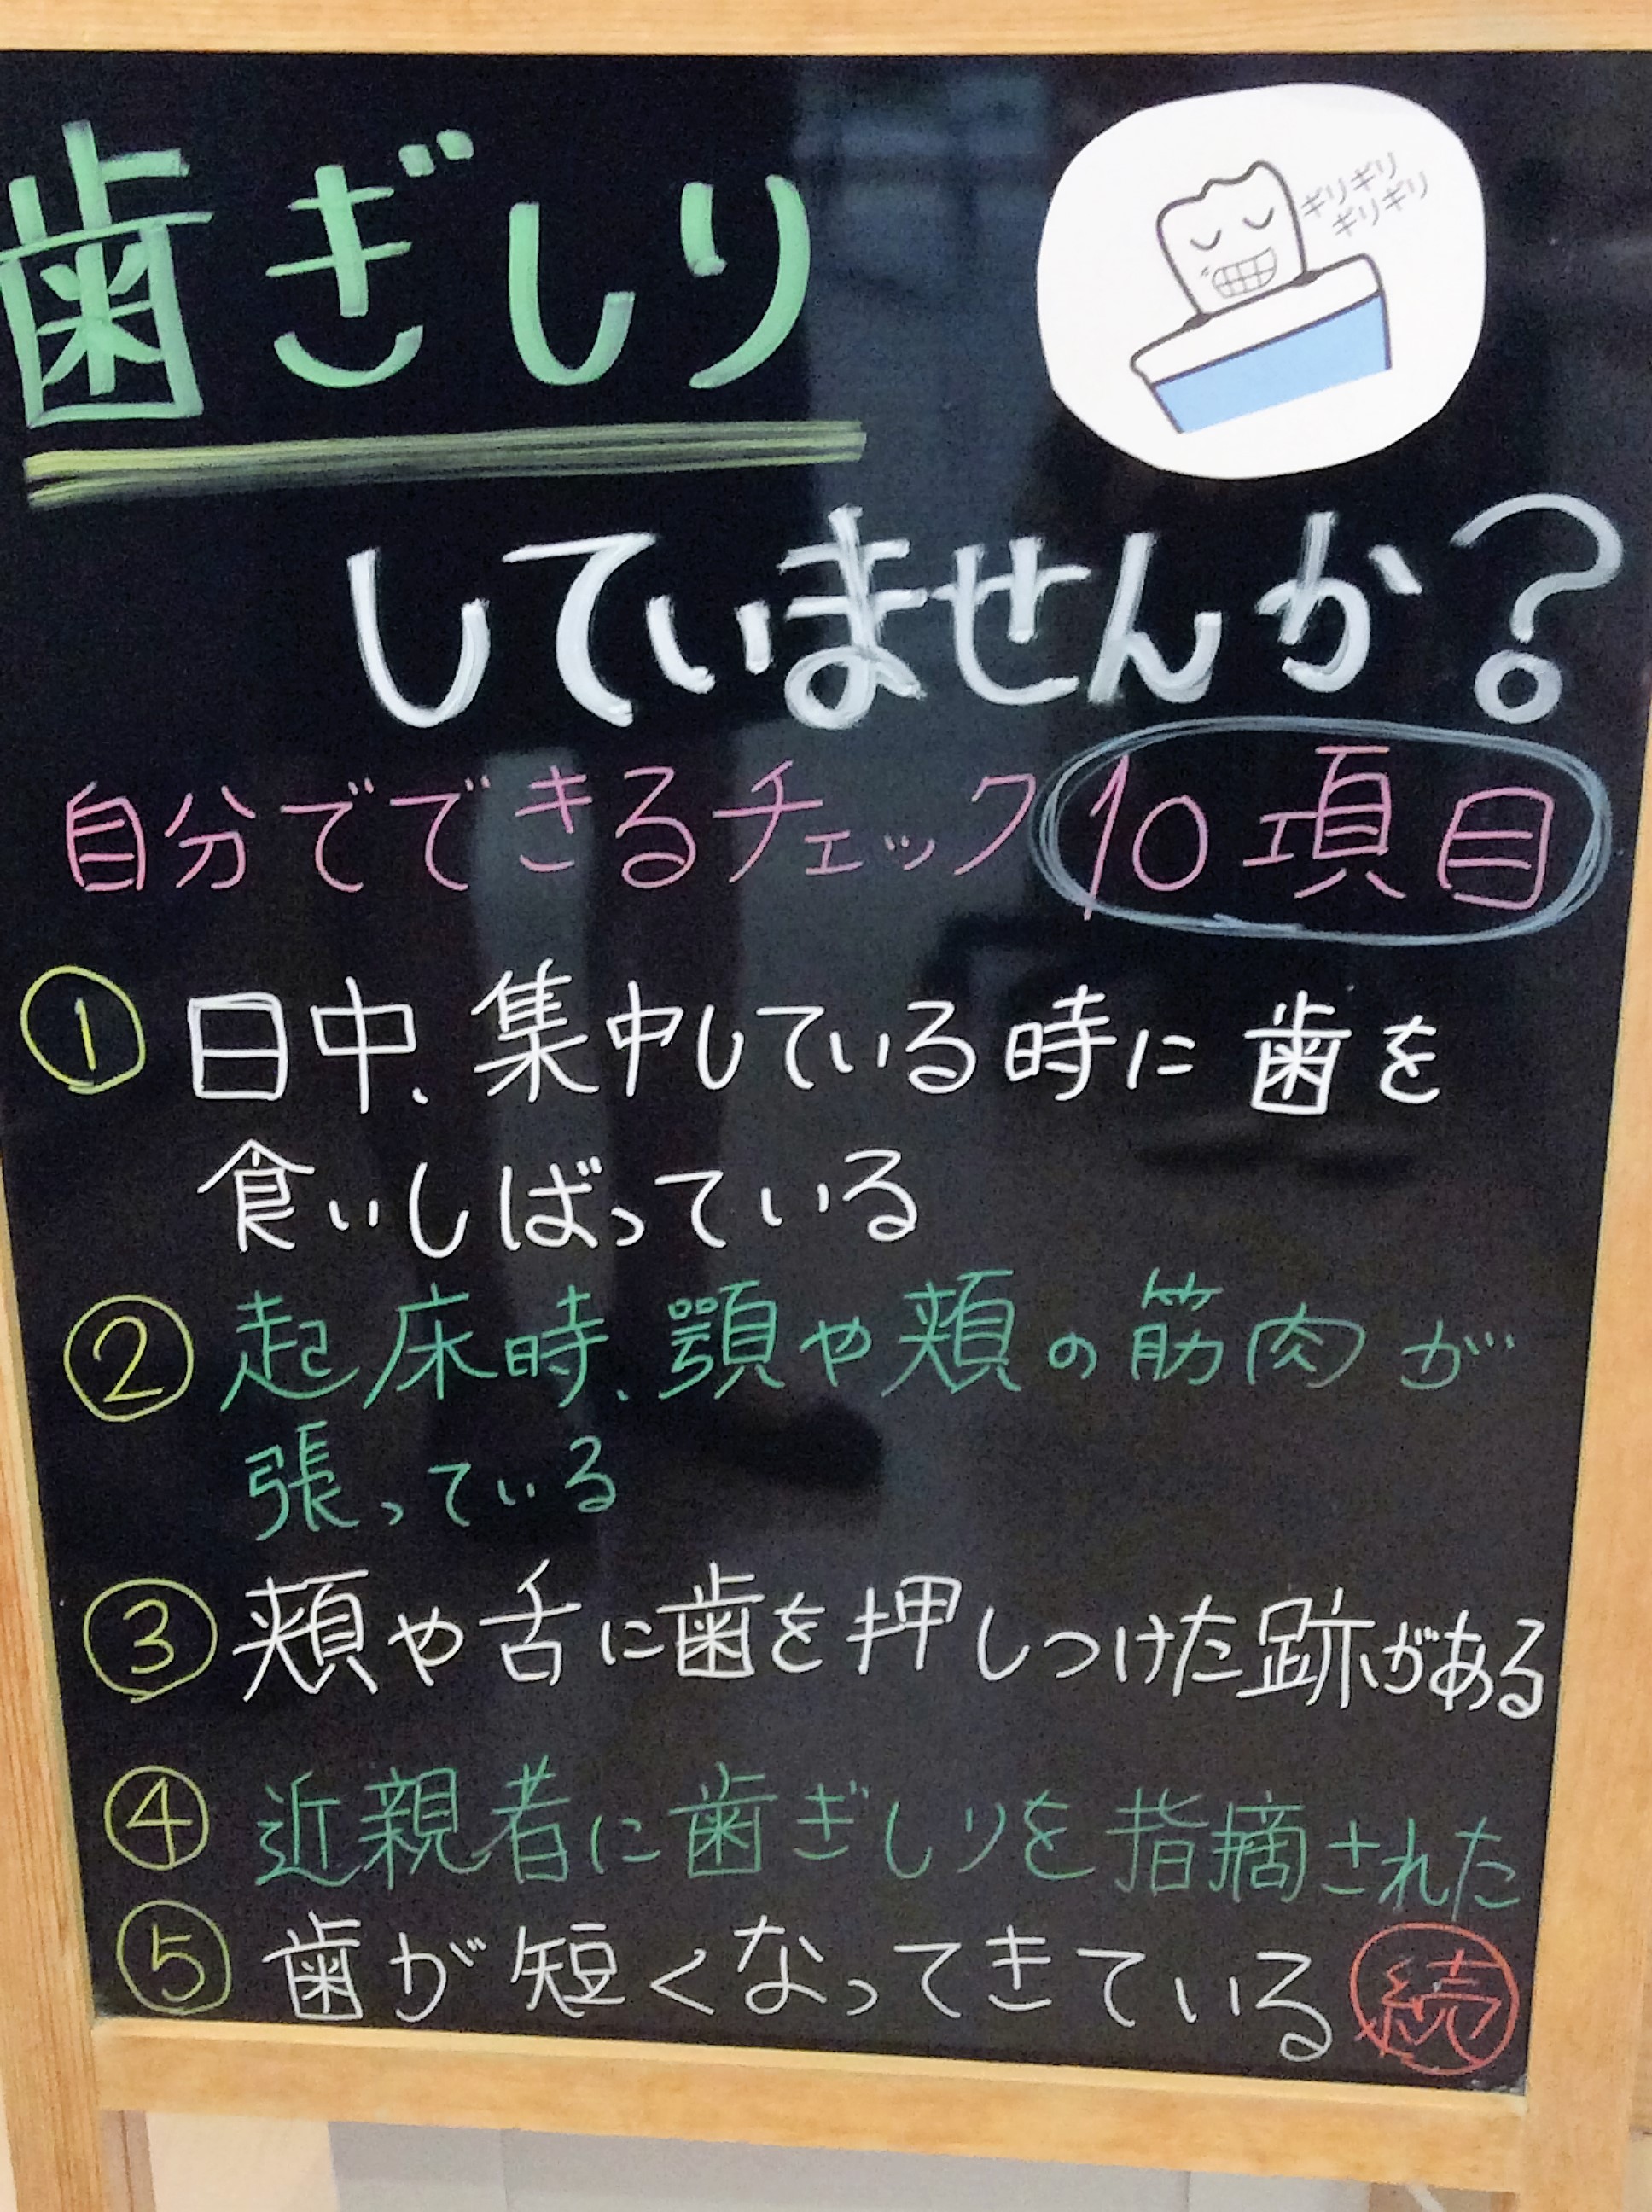 歯ぎしり
ギリギリ
ギリギリ
していませんか?
自分でできるチェック10項目
① 日中、集中している時に歯を
食いしばっている
② 起床時、顎や頬の筋肉が
張っている
③ 頬や舌に歯を押しつけた跡がある
④ 近親者に歯ぎしりを指摘された
⑤ 歯が短くなってきている 続